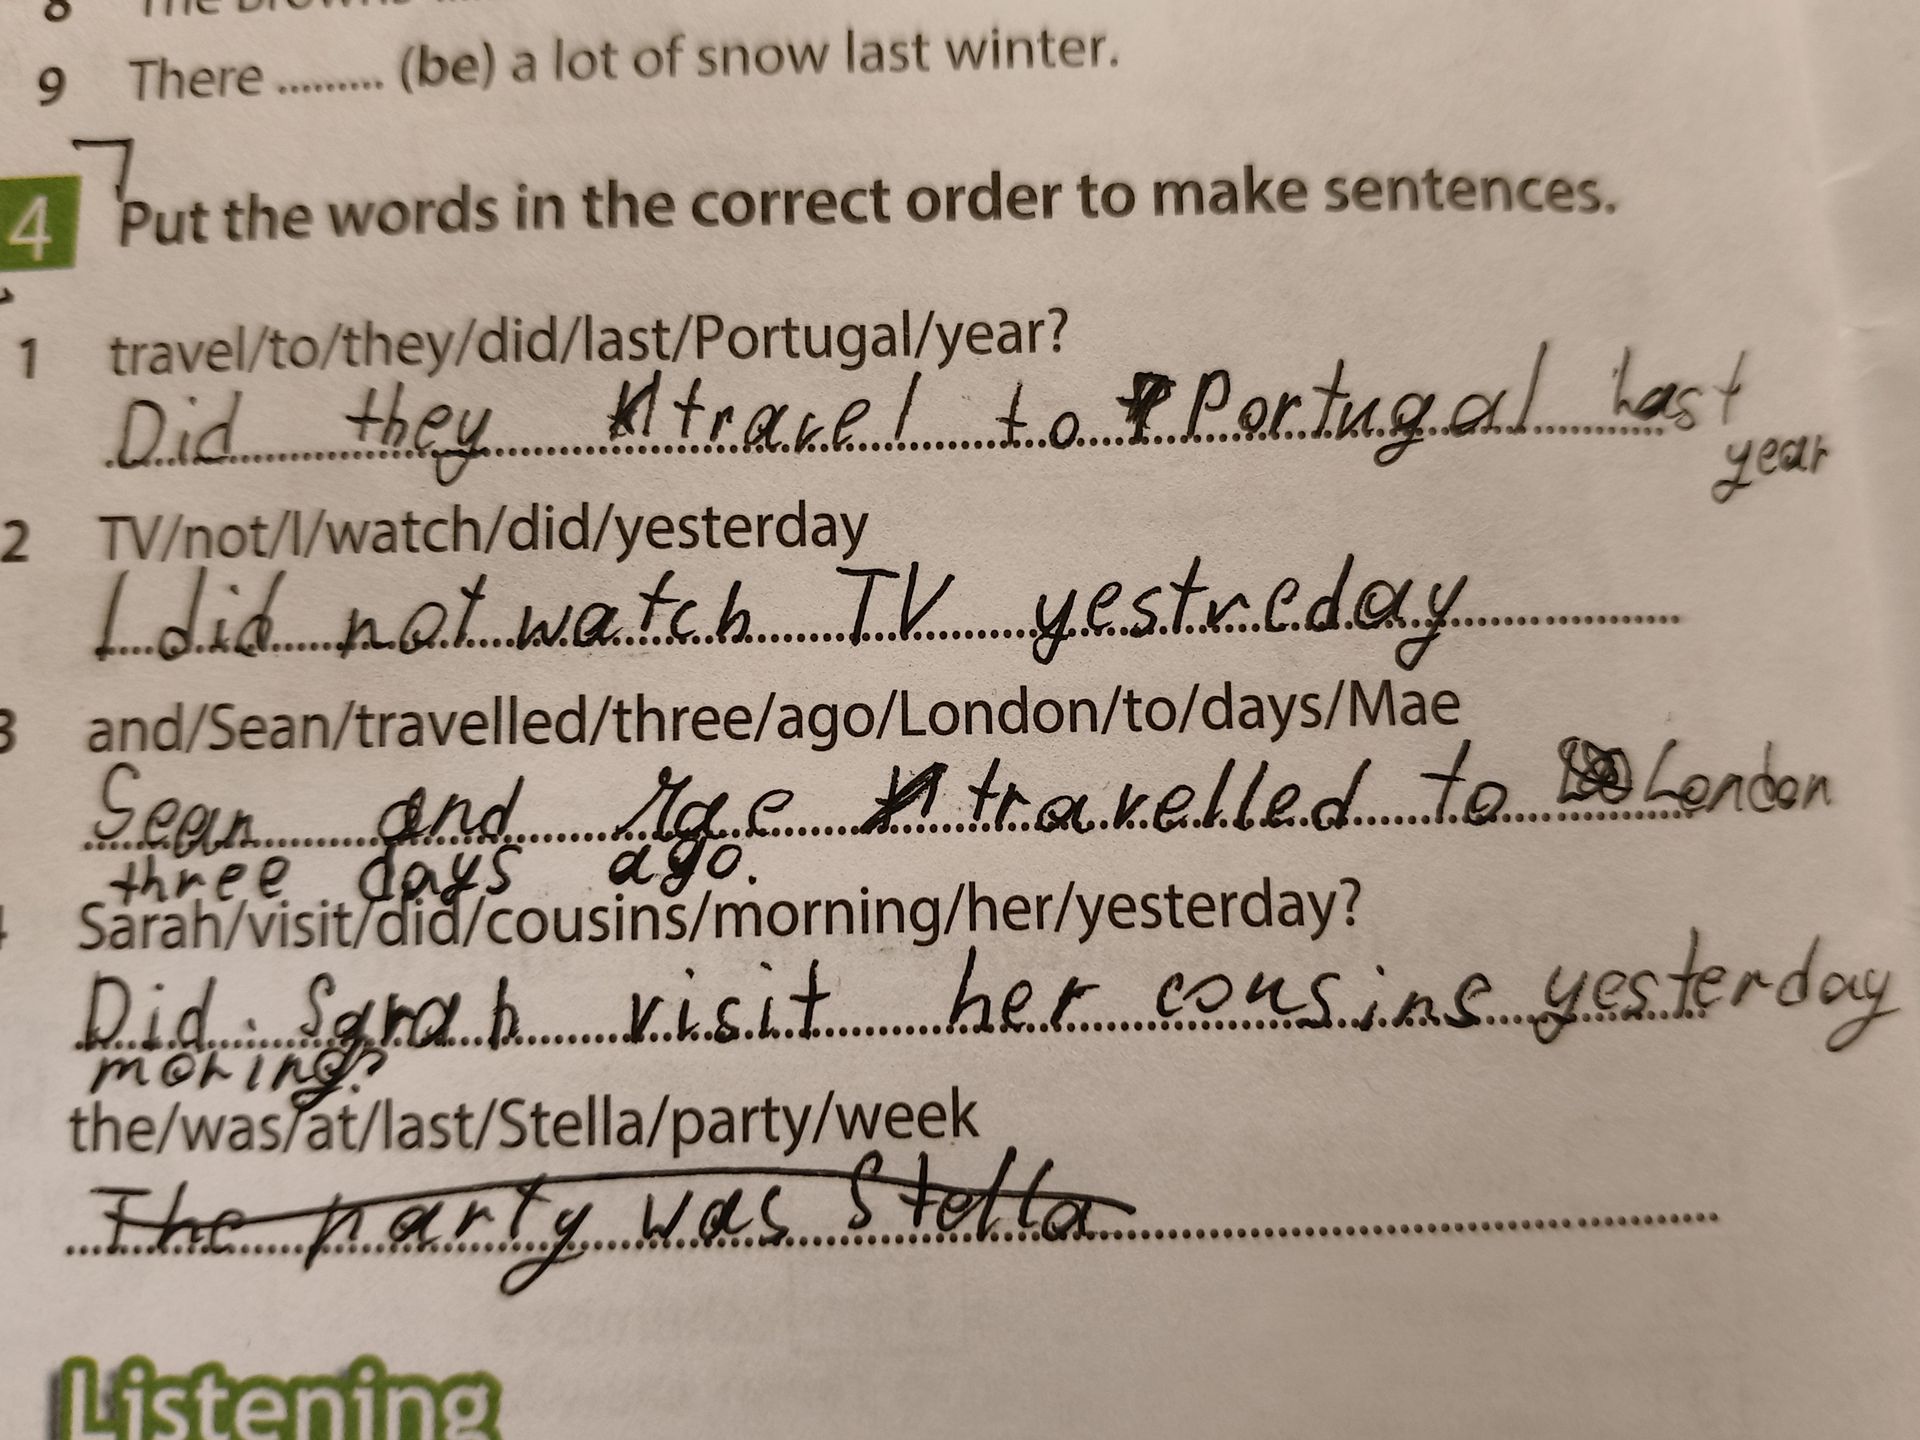 8 The Browns
9 There ......... (be) a lot of snow last winter.
4 Put the words in the correct order to make sentences.
1 travel/to/they/did/last/Portugal/year?
Did they travel to Portugal Last
year
2 TV/not/I/watch/did/yesterday
I did not watch TV yestreday
3 and/Sean/travelled/three/ago/London/to/days/Mae
Sean and travelled to London
three days ago.
Sarah/visit/did/cousins/morning/her/yesterday?
Did Sarah visit her cousins yesterday
moring?
the/was/at/last/Stella/party/week
The party was Stella
Listening